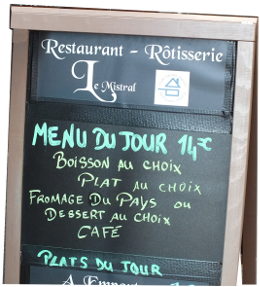 Restaurant - Rôtisserie
Le Mistral
MENU DU JOUR 14€
BOISSON AU CHOIX
PLAT AU CHOIX
FROMAGE DU PAYS OU
DESSERT AU CHOIX
CAFÉ
PLATS DU JOUR
A Emporter